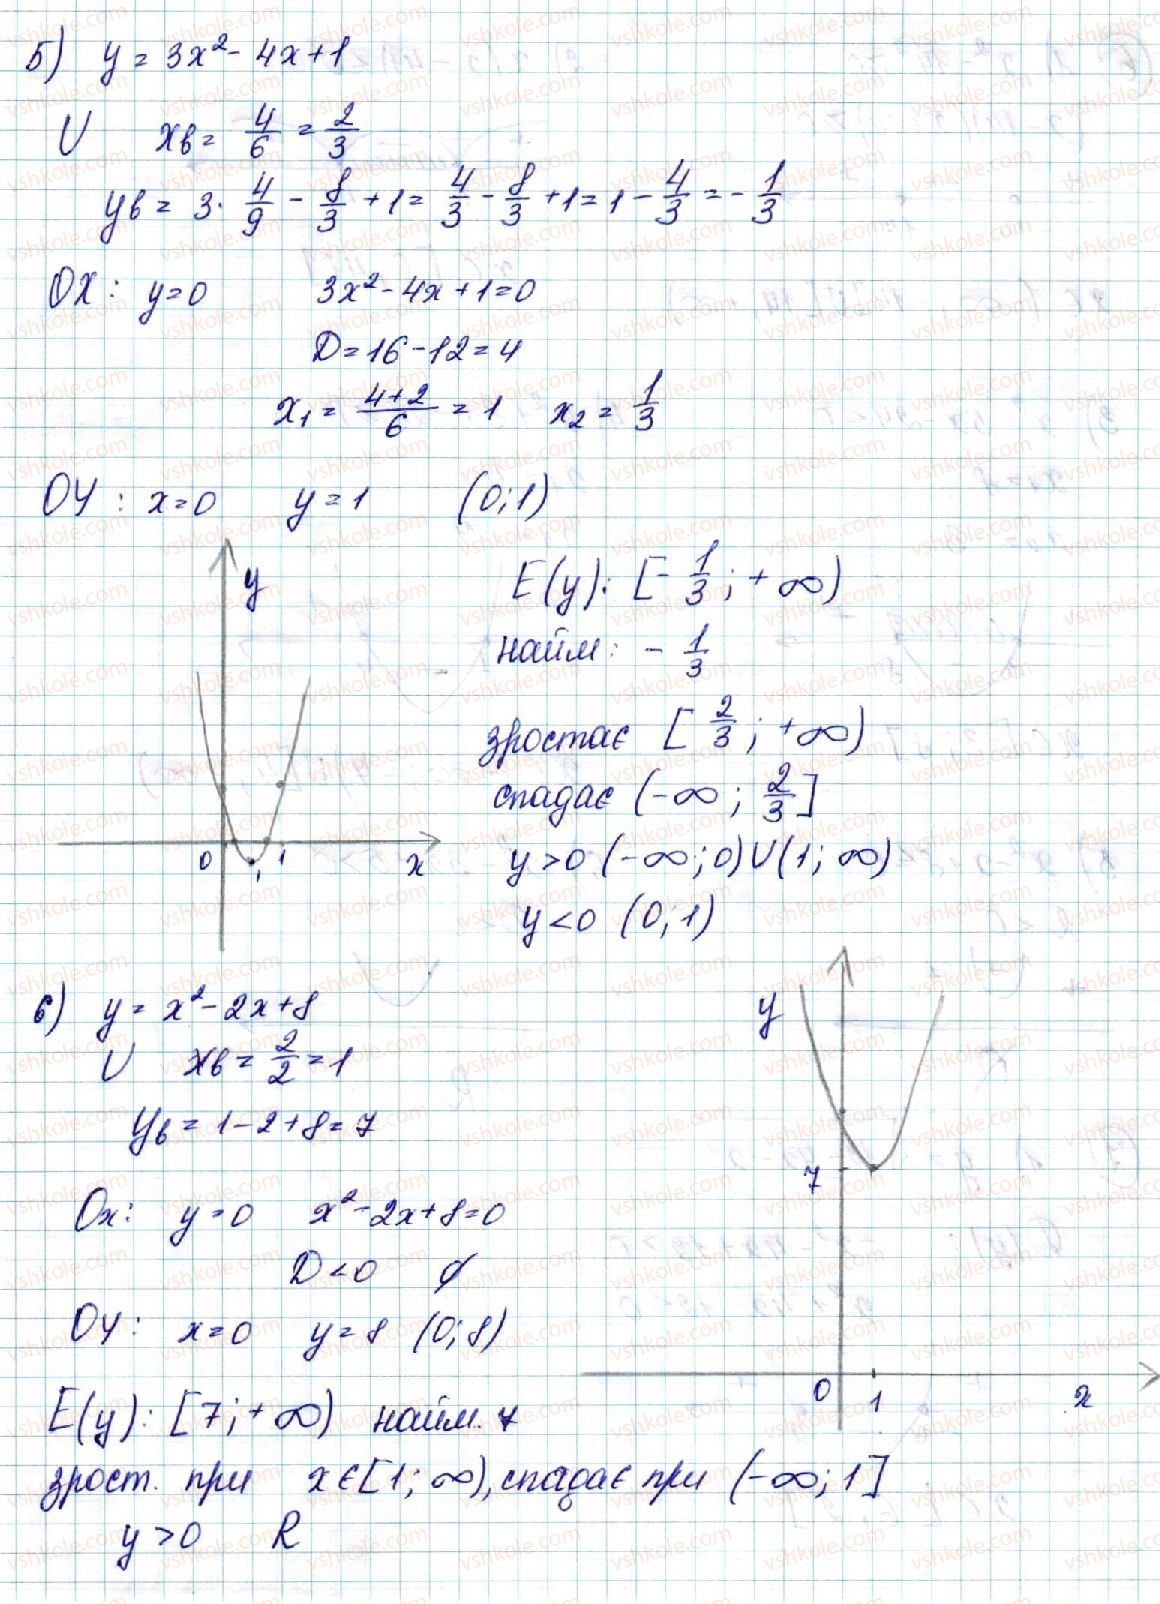 5) y = 3x² - 4x + 1
U xв = 4/6 = 2/3
yв = 3 · 4/9 - 8/3 + 1 = 4/3 - 8/3 + 1 = 1 - 4/3 = - 1/3
OX: y = 0 3x² - 4x + 1 = 0
D = 16 - 12 = 4
x₁ = (4+2)/6 = 1 x₂ = 1/3
OY: x = 0 y = 1 (0; 1)
y
E(y): [- 1/3; + ∞)
найм: - 1/3
зростає [2/3; +∞)
спадає (-∞; 2/3]
0 1 x
y > 0 (-∞; 0) U (1; ∞)
y < 0 (0; 1)
6) y = x² - 2x + 8
U xв = 2/2 = 1
yв = 1 - 2 + 8 = 7
y
7
Ox: y = 0 x² - 2x + 8 = 0
D < 0 ∅
Oy: x = 0 y = 8 (0; 8)
0 1 x
E(y): [7; + ∞) найм. 7
зрост. при x ∈ [1; ∞), спадає при (-∞; 1]
y > 0 R
vshkole.com